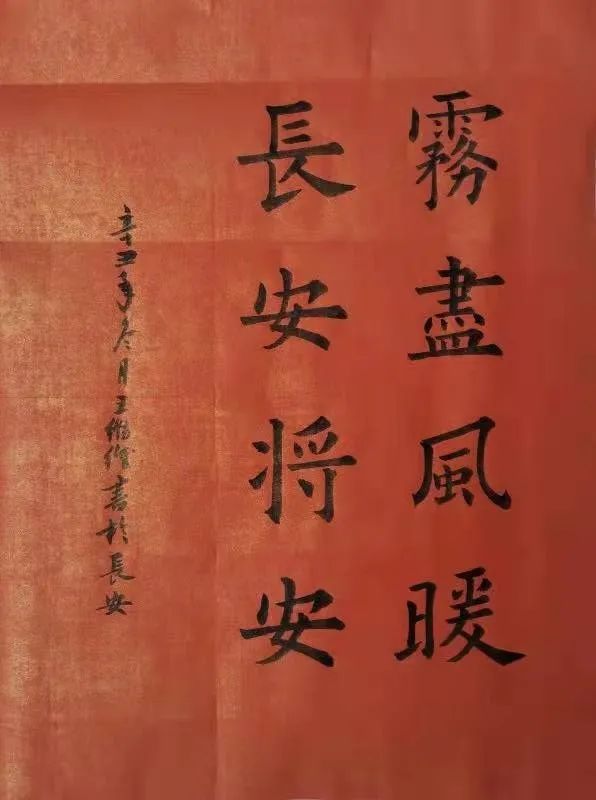 霧盡風暖
長安将安
辛丑年冬月王書於長安